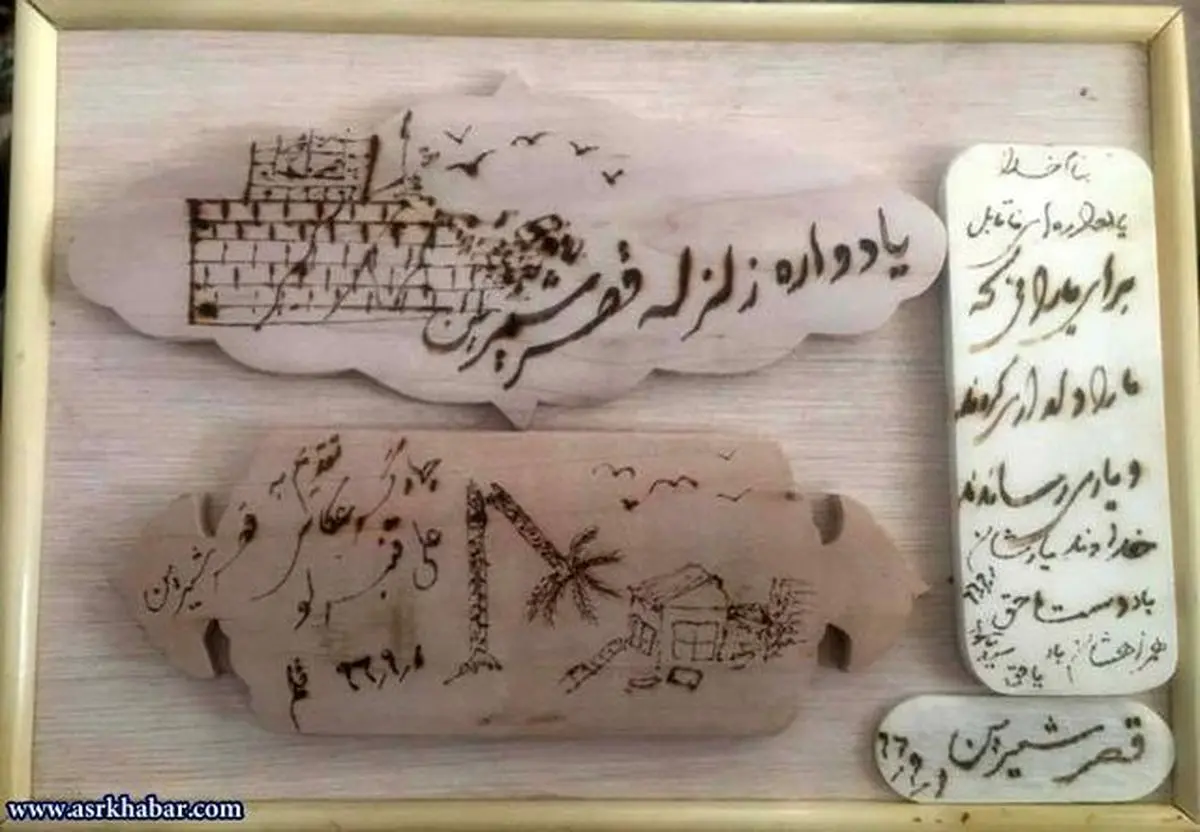 یادواره زلزله قصر شیرین
بنام خدا
یادواره ای ناقابل
برای مردانی که
ما را دلداری کردند
و یاری رساندند
خداوند یارشان
با دوست حق
همراهشان باد
یا حق
تقدیم به
علی قنبرلو
قصر شیرین
۹۶/۹/۱
قصر شیرین
۹۶/۹/۱
www.asrkhabar.com